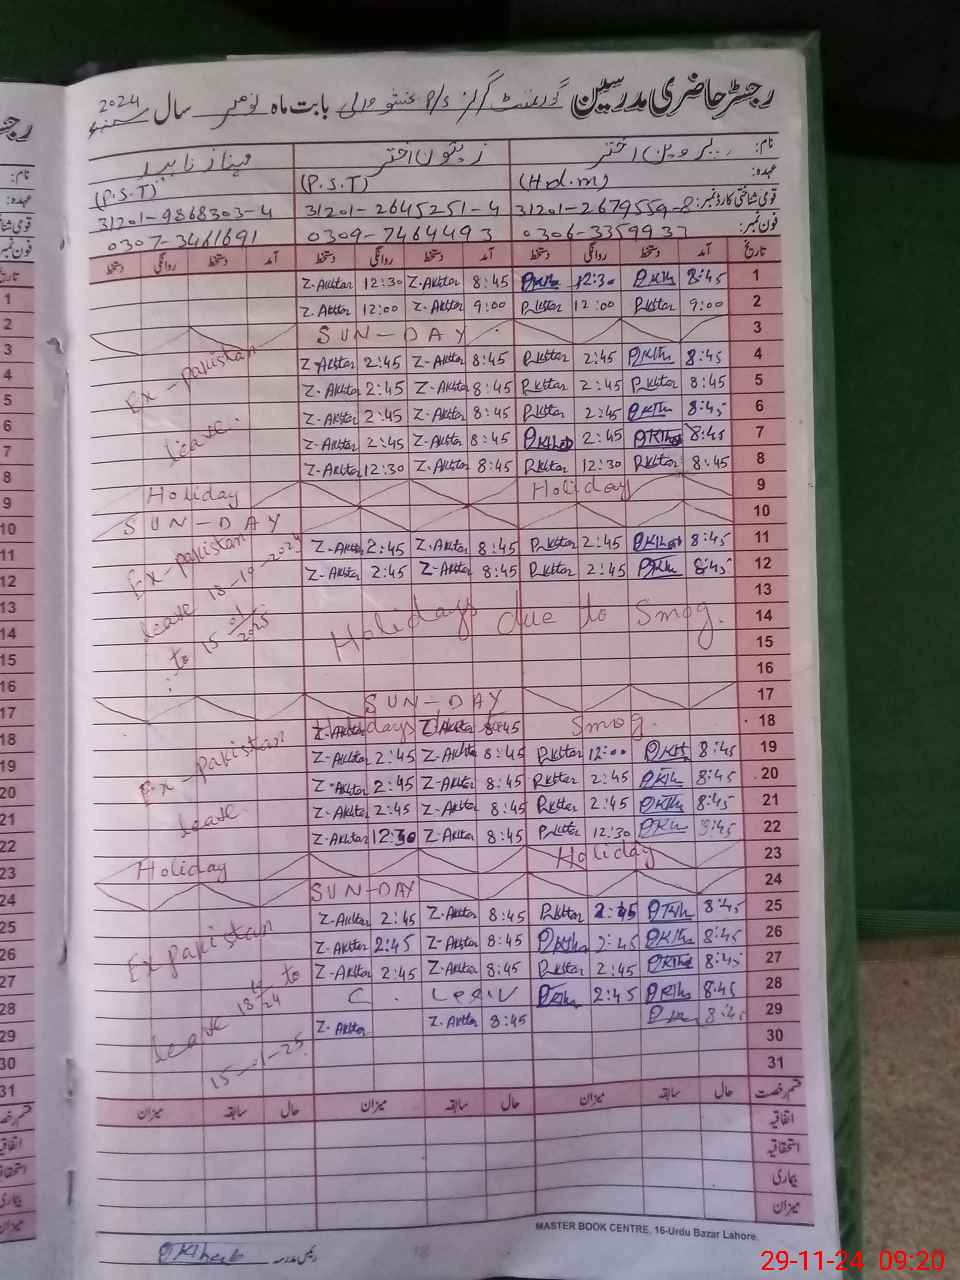 رجسٹر حاضری مدرسین گورنمنٹ گرلز P/S بابت ماہ نومبر سال 2024
نام: پروین اختر زیتون اختر مہناز ناہید
عہدہ: (H.d.m) (P.S.T) (P.S.T)
قومی شناختی کارڈ نمبر: 31201-2679559-8 31201-2645251-4 31201-9868303-4
فون نمبر: 0306-3359937 0309-7464493 0307-3461691
تاریخ آمد دستخط روانگی دستخط آمد دستخط روانگی دستخط آمد دستخط روانگی دستخط
1 8:45 12:30 8:45 Z.Akhtar 12:30 Z.Akhtar
2 9:00 P.Khtar 12:00 P.Khtar 9:00 Z.Akhtar 12:00 Z.Akhtar
3 SUN-DAY
4 8:45 2:45 P.Khtar 8:45 Z-Akhtar 2:45 Z-Akhtar Ex-pakistan
5 8:45 P.Khtar 2:45 P.Khtar 8:45 Z-Akhtar 2:45 Z-Akhtar
6 8:45 2:45 P.Khtar 8:45 Z-Akhtar 2:45 Z-Akhtar leave.
7 8:45 2:45 8:45 Z-Akhtar 2:45 Z-Akhtar
8 8:45 P.Khtar 12:30 P.Khtar 8:45 Z-Akhtar 12:30 Z-Akhtar
9 Holiday Holiday
10 SUN-DAY
11 8:45 2:45 P.Khtar 8:45 Z-Akhtar 2:45 Z-Akhtar Ex-pakistan
12 8:45 2:45 P.Khtar 8:45 Z-Akhtar 2:45 Z-Akhtar leave 18-10-2024
13
14 Holidays due to Smog. to 15 01/2025
15
16
17 SUN-DAY
18 Smog. 8:45 Z.Akhtar Holidays
19 8:45 12:00 P.Khtar 8:45 Z-Akhtar 2:45 Z-Akhtar Ex-pakistan
20 8:45 2:45 P.Khtar 8:45 Z-Akhtar 2:45 Z-Akhtar
21 8:45 2:45 P.Khtar 8:45 Z-Akhtar 2:45 Z-Akhtar leave
22 12:30 P.Khtar 8:45 Z-Akhtar 12:30 Z-Akhtar
23 Holiday Holiday
24 SUN-DAY
25 8:45 2:45 P.Khtar 8:45 Z-Akhtar 2:45 Z-Akhtar
26 8:45 2:45 8:45 Z-Akhtar 2:45 Z-Akhtar Ex pakistan
27 8:45 2:45 P.Khtar 8:45 Z-Akhtar 2:45 Z-Akhtar
28 8:45 2:45 C. Leaiv
29 8:45 8:45 Z.Akhtar Z.Akhtar leave to
30 15-1-25
31
قسم رخصت حال سابقہ میزان حال سابقہ میزان حال سابقہ میزان
اتفاقیہ
استحقاقیہ
بیماری
میزان
MASTER BOOK CENTRE, 16-Urdu Bazar Lahore.
رئیس مدرسہ
29-11-24 09:20